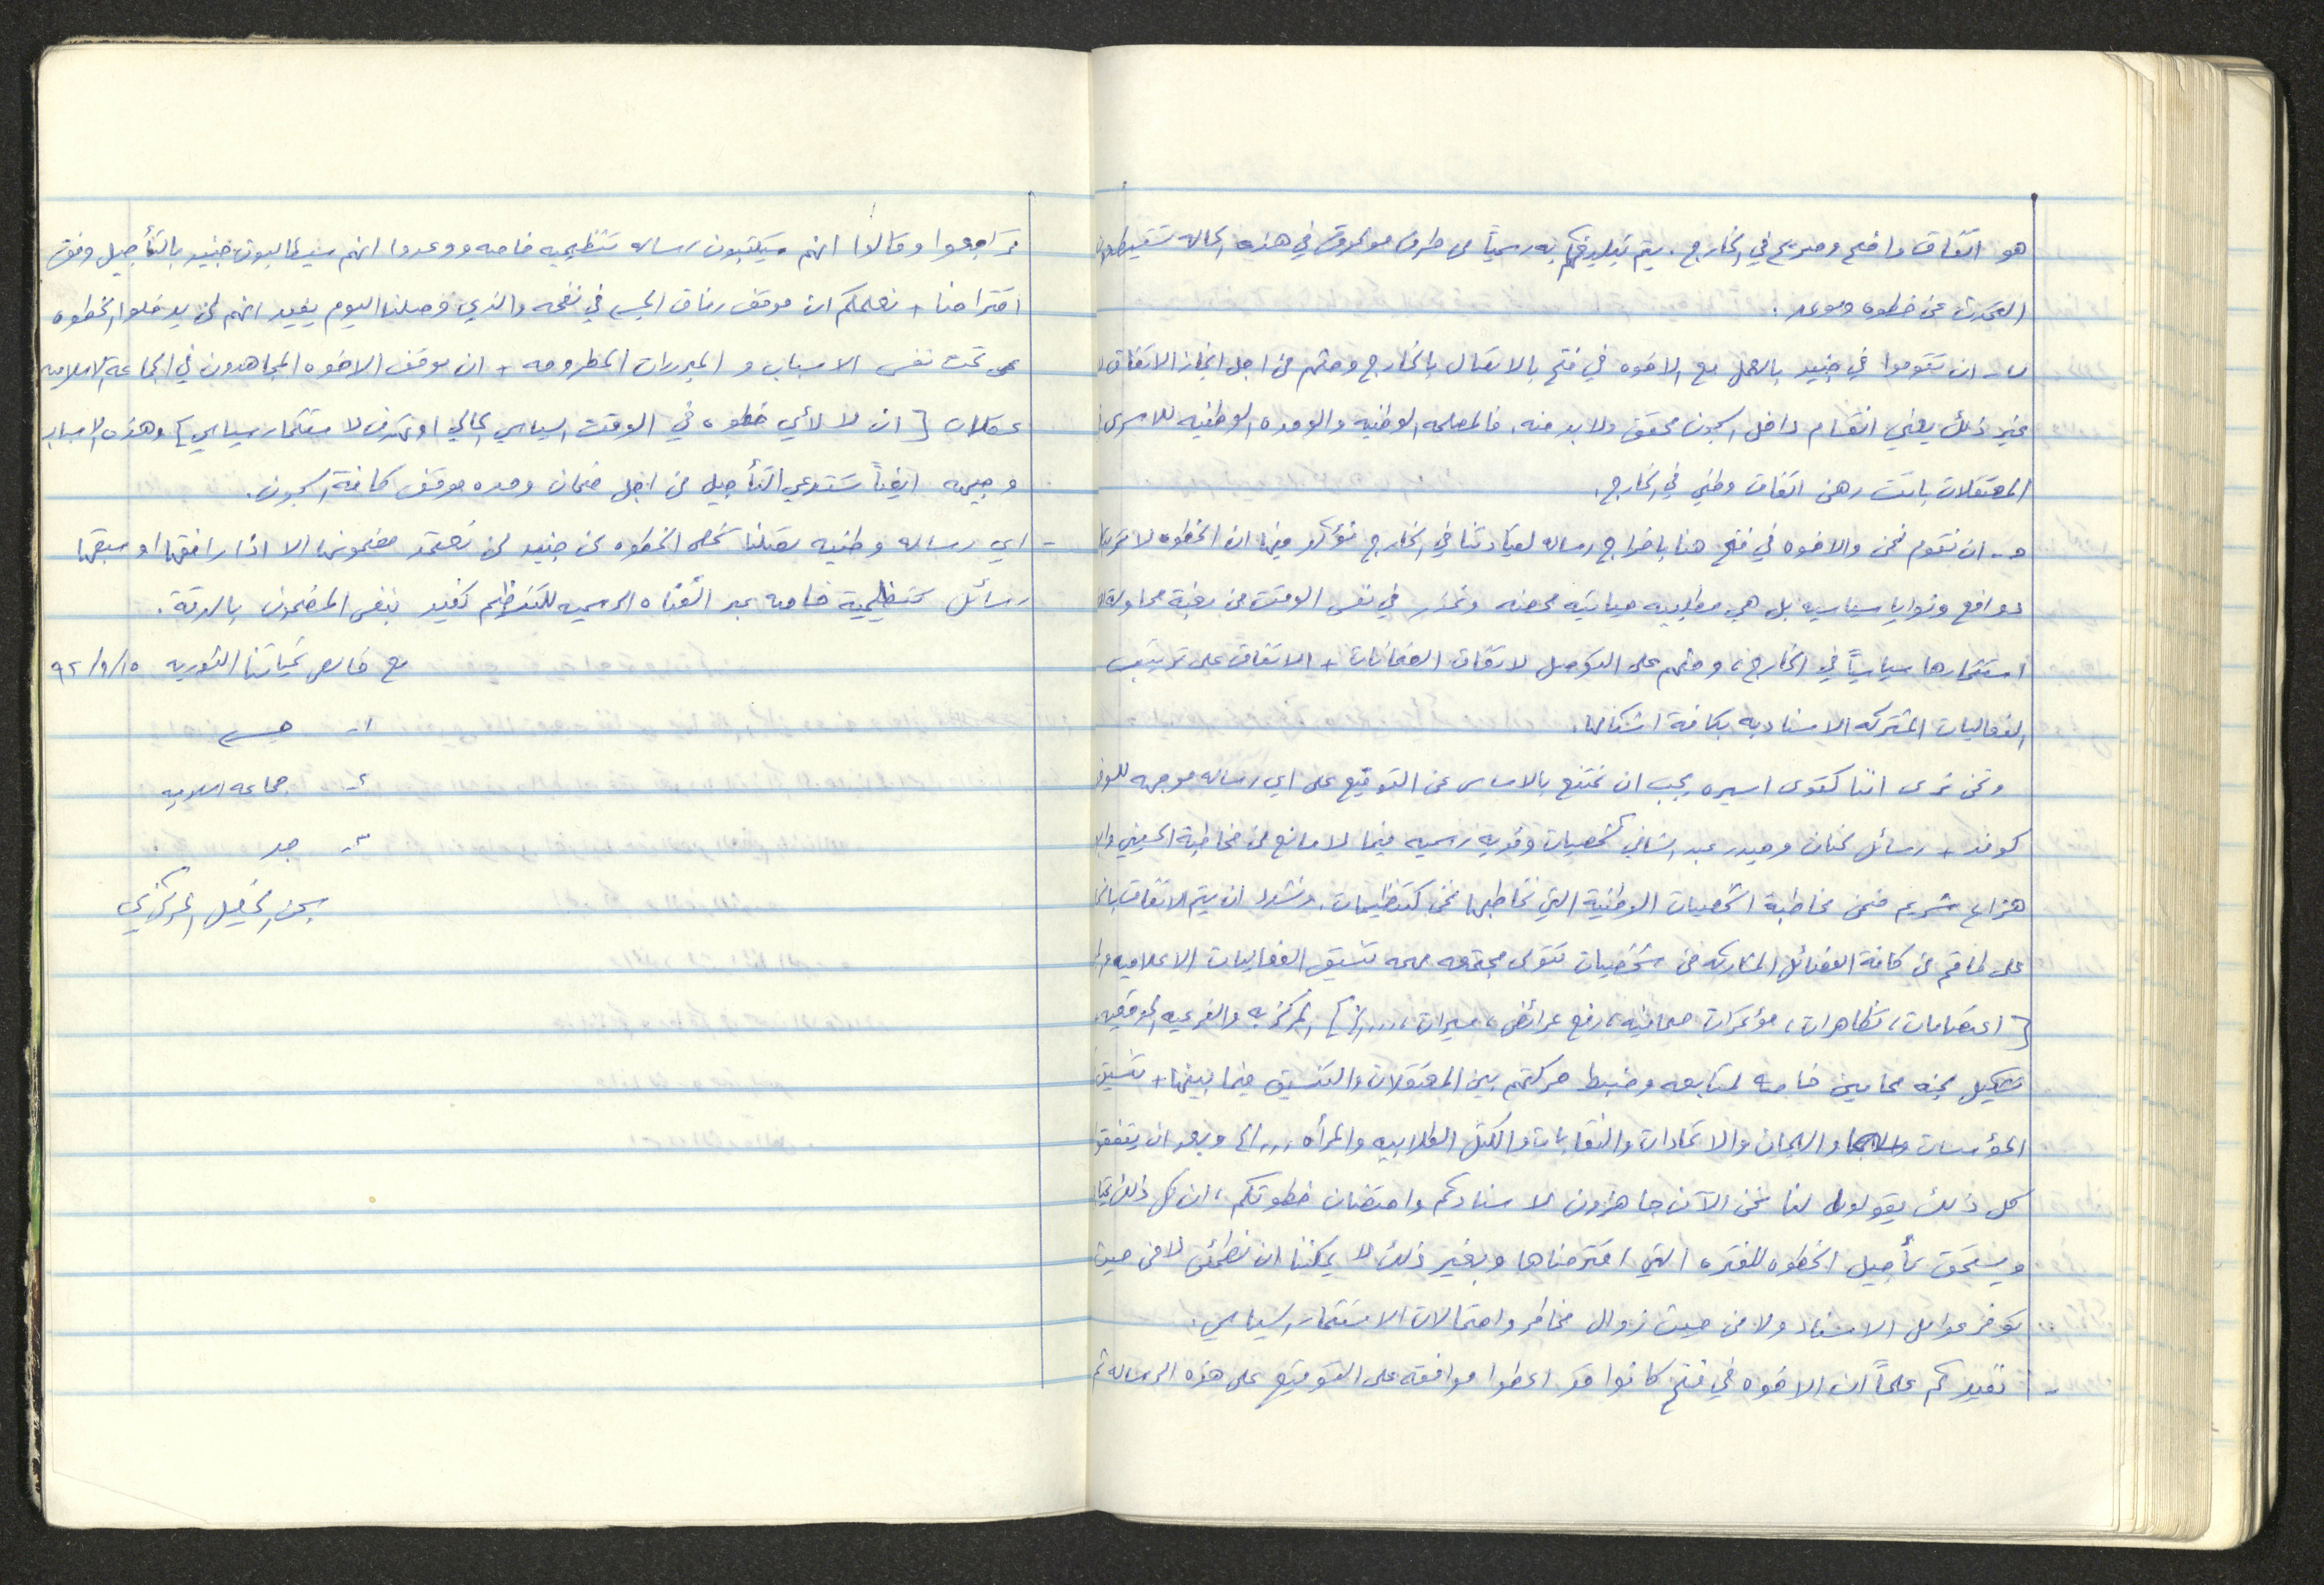 هو اتفاق واضح وصريح في الخارج. يتم تبليغكم به رسمياً من طرف موثوق في هذه الحاله تستطيعون
التحدث عن خطوه وموعد:
ب- ان تقوموا في جنيد بالعمل مع الاخوه في فتح بالاتصال بالخارج وحثهم من اجل انجاز الاتفاق
غير ذلك يعني انقسام داخل السجون محقق ولا بد منه، فالمصلحه الوطنيه والوحده الوطنيه للاسرى
المعتقلات باتت رهن اتفاق وطني في الخارج.
ج- ان نقوم نحن والاخوه في فتح هنا باخراج رساله لقيادتنا في الخارج نؤكد فيها ان الخطوه لا
دوافع ونوايا سياسيه بل هي مطلبيه حياتيه محضه ونحذر في نفس الوقت من مغبة محاولة
استثمارها سياسياً في الخارج، وحثهم على التوصل لاتفاق الضمانات + الاتفاق على ترتيب
الفعاليات المشتركه الاسناديه بكافة اشكالها.
ونحن نرى اننا كقوى اسيره يجب ان نمتنع بالاساس عن التوقيع على اي رساله موجهه للوفد
كوفد + رسائل لحنان وحيدر عبد الشافي كشخصيات وفديه رسميه فيما لا مانع من مخاطبة الحسيني
هزاع شريم ضمن مخاطبة الشخصيات الوطنية التي نخاطبها نحن كتنظيمات. ونشدد ان يتم الاتفاق
على طاقم من كافة الفصائل المشاركه من شخصيات تتولى مجتمعه مهمه تنسيق الفعاليات الاعلاميه
[اعتصامات، تظاهرات، مؤتمرات صحافيه، رفع عرائض، مسيرات،... الخ] المركزيه والفرعيه الموقعيه.
تشكيل لجنه محامين خاصه لمتابعه وضبط حركتهم بين المعتقلات والتنسيق فيما بينها + تنسيق
المؤسسات واللجان والاتحادات والنقابات والكتل الطلابيه والمرأه... الخ وبعد ان يتفقوا
كل ذلك يقولوا لنا نحن الآن جاهزون لاسنادكم واحتضان خطوتكم، ان كل ذلك
ويستحق تأجيل الخطوه للفتره التي اقترحناها وبغير ذلك لا يمكننا ان نطمئن لا من حيث
توفر عوامل الاسناد ولا من حيث زوال مخاطر واحتمالات الاستثمار السياسي.
- نفيدكم علماً ان الاخوه في فتح كانوا قد اعطوا موافقه على التوقيع على هذه الرساله ثم
تراجعوا وقالوا انهم سيكتبون رساله تنظيميه خاصه ووعدوا انهم سيطالبون جنيد بالتأجيل وفق
اقتراحنا + نعلمكم ان موقف رفاق الجبهه في نفحه والذي وصلنا اليوم يفيد انهم لن يدخلوا الخطوه
تحت نفس الاسباب والمبررات المطروحه + ان موقف الاخوه المجاهدون في الجماعة الاسلاميه
عسقلان [ان لا لأي خطوه في الوقت السياسي الحالي او تهدف لاستثمار سياسي] وهذه الاسباب
وجيهه ايضاً تستدعي التأجيل من اجل ضمان وحده موقف كافة السجون.
- اي رساله وطنيه تصلنا تخص الخطوه من جنيد لن نعتمد مضمونها الا اذا رافقها او سبقها
رسائل تنظيمية خاصه عبر القناه الرسميه للتنظيم تفيد بنفس المضمون بالدقة.
مع خالص تحياتنا الثوريه ٩٢/٩/١٥
١-
٢- جماعه اسلاميه
٣- جد
سجن الخليل المركزي